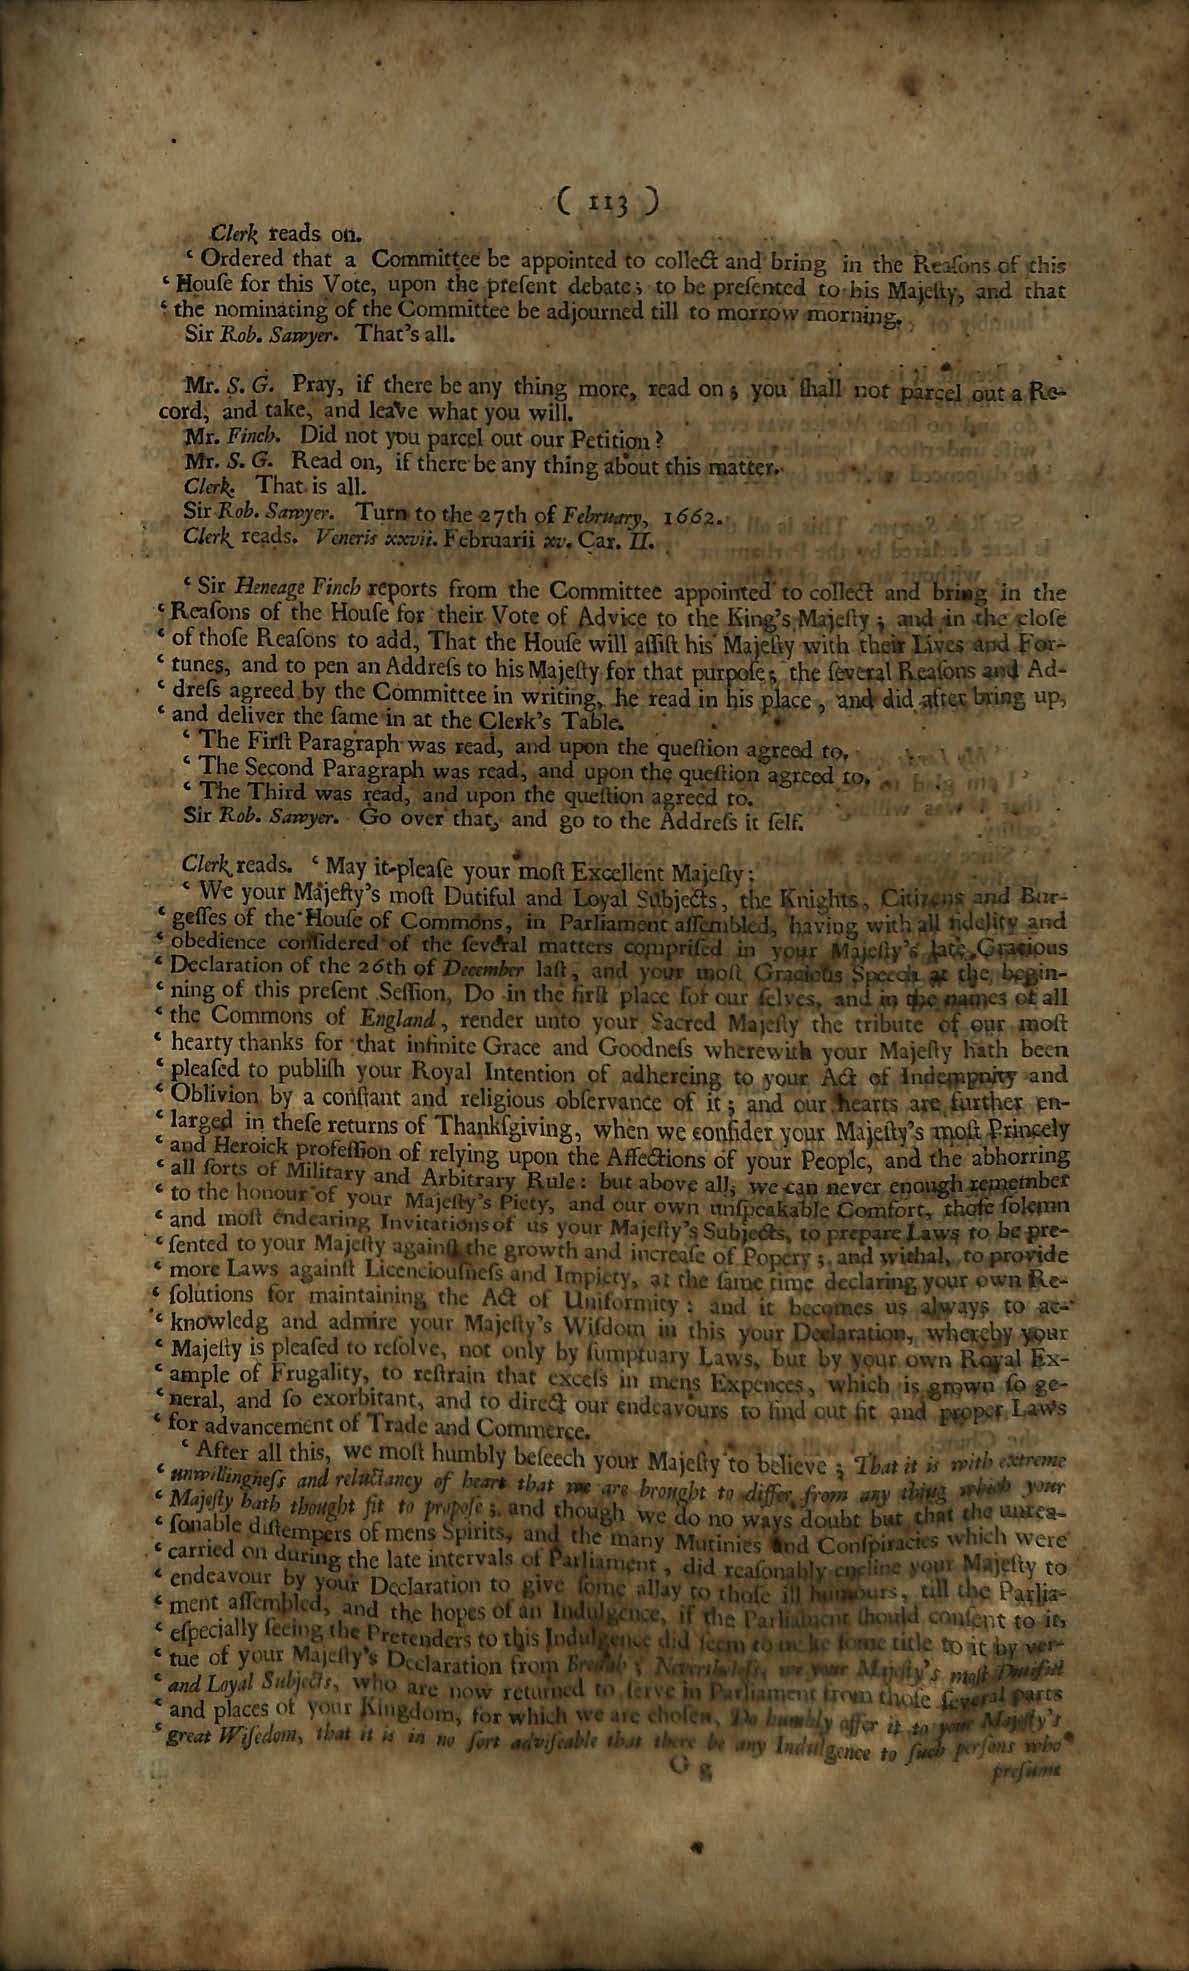 ( 113 )
Clerk reads on.
‘ Ordered that a Committee be appointed to collect and bring in the Reaſons of this
‘ Houſe for this Vote, upon the preſent debate; to be preſented to his Majeſty, and that
‘ the nominating of the Committee be adjourned till to morrow morning.
Sir Rob. Sawyer. That's all.
Mr. S. G. Pray, if there be any thing more, read on; you ſhall not parcel out a Re-
cord, and take, and leave what you will.
Mr. Finch. Did not you parcel out our Petition?
Mr. S. G. Read on, if there be any thing about this matter.
Clerk. That is all.
Sir Rob. Sawyer. Turn to the 27th of February, 1662.
Clerk reads. Veneris xxvii. Februarii xv. Car. II.
‘ Sir Heneage Finch reports from the Committee appointed to collect and bring in the
‘ Reaſons of the Houſe for their Vote of Advice to the King's Majeſty; and in the cloſe
‘ of thoſe Reaſons to add, That the Houſe will aſſiſt his Majeſty with their Lives and For-
‘ tunes, and to pen an Addreſs to his Majeſty for that purpoſe; the ſeveral Reaſons and Ad-
‘ dreſs agreed by the Committee in writing, he read in his place, and did after bring up,
‘ and deliver the ſame in at the Clerk's Table.
‘ The Firſt Paragraph was read, and upon the queſtion agreed to.
‘ The Second Paragraph was read, and upon the queſtion agreed to.
‘ The Third was read, and upon the queſtion agreed to.
Sir Rob. Sawyer. Go over that, and go to the Addreſs it ſelf.
Clerk reads. ‘ May it pleaſe your moſt Excellent Majeſty:
‘ We your Majeſty's moſt Dutiful and Loyal Subjects, the Knights, Citizens and Bur-
‘ geſſes of the Houſe of Commons, in Parliament aſſembled, having with all fidelity and
‘ obedience conſidered of the ſeveral matters compriſed in your Majeſty's late Gracious
‘ Declaration of the 26th of December laſt, and your moſt Gracious Speech at the begin-
‘ ning of this preſent Seſſion, Do in the firſt place for our ſelves, and in the names of all
‘ the Commons of England, render unto your Sacred Majeſty the tribute of our moſt
‘ hearty thanks for that infinite Grace and Goodneſs wherewith your Majeſty hath been
‘ pleaſed to publiſh your Royal Intention of adhereing to your Act of Indempnity and
‘ Oblivion by a conſtant and religious obſervance of it; and our hearts are further en-
‘ larged in theſe returns of Thankſgiving, when we conſider your Majeſty's moſt Princely
‘ and Heroick profeſſion of relying upon the Affections of your People, and the abhorring
‘ all ſorts of Military and Arbitrary Rule: but above all, we can never enough remember
‘ to the honour of your Majeſty's Piety, and our own unſpeakable Comfort, thoſe ſolemn
‘ and moſt endearing Invitations of us your Majeſty's Subjects, to prepare Laws to be pre-
‘ ſented to your Majeſty againſt the growth and increaſe of Popery; and withal, to provide
‘ more Laws againſt Licenciouſneſs and Impiety, at the ſame time declaring your own Re-
‘ ſolutions for maintaining the Act of Uniformity: and it becomes us always to ac-
‘ knowledg and admire your Majeſty's Wiſdom in this your Declaration, whereby your
‘ Majeſty is pleaſed to reſolve, not only by ſumptuary Laws, but by your own Royal Ex-
‘ ample of Frugality, to reſtrain that exceſs in mens Expences, which is grown ſo ge-
‘ neral, and ſo exorbitant, and to direct our endeavours to find out fit and proper Laws
‘ for advancement of Trade and Commerce.
‘ After all this, we moſt humbly beſeech your Majeſty to believe; That it is with extreme
‘ unwillingneſs and reluctancy of heart that we are brought to differ from any thing which your
‘ Majeſty hath thought fit to propoſe; and though we do no ways doubt but that the unrea-
‘ ſonable diſtempers of mens Spirits, and the many Mutinies and Conſpiracies which were
‘ carried on during the late intervals of Parliament, did reaſonably encline your Majeſty to
‘ endeavour by your Declaration to give ſome allay to thoſe ill humours, till the Parlia-
‘ ment aſſembled, and the hopes of an Indulgence, if the Parliament ſhould conſent to it,
‘ eſpecially ſeeing the Pretenders to this Indulgence did ſeem to make ſome title to it by ver-
‘ tue of your Majeſty's Declaration from Bredah; Nevertheleſs, we your Majeſty's moſt Dutiful
‘ and Loyal Subjects, who are now returned to ſerve in Parliament from thoſe ſeveral parts
‘ and places of your Kingdom, for which we are choſen, Do humbly offer it to your Majeſty's
‘ great Wiſedom, that it is in no ſort adviſeable that there be any Indulgence to ſuch perſons who
G g
preſume